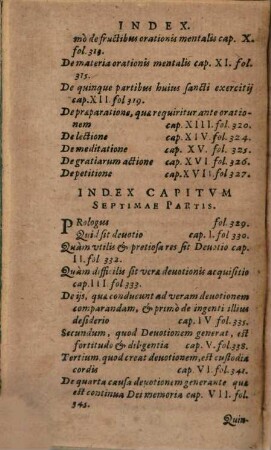 INDEX.
mò de fructibus orationis mentalis cap. X.
fol. 312.
De materia orationis mentalis cap. XI. fol.
315.
De quinque partibus huius sancti exercitij
cap. XII. fol 319.
De præparatione, quæ requiritur ante orationem
nem cap. XIII. fol. 320.
De lectione cap. XIV. fol. 324.
De meditatione cap. XV. fol. 325.
De gratiarum actione cap. XVI fol 326.
De petitione cap. XVII. fol 327.
INDEX CAPITVM
SEPTIMAE PARTIS.
PRologus fol. 329.
Quid sit deuotio cap. I. fol 330.
Quàm vtilis & pretiosa res sit Deuotio cap.
II. fol 332.
Quàm difficilis sit vera deuotionis acquisitio
cap. III fol 333.
De ijs, quæ conducunt ad veram deuotionem
comparandam, & primò de ingenti illius
desiderio cap. IV fol. 335.
Secundum, quod Deuotionem generat, est
fortitudo & diligentia cap. V. fol. 338.
Tertium quod creat deuotionem, est custodia
cordis cap. VI fol. 341.
De quarta causa deuotionem generante quæ
est continua Dei memoria cap. VII. fol.
343.
Quin-